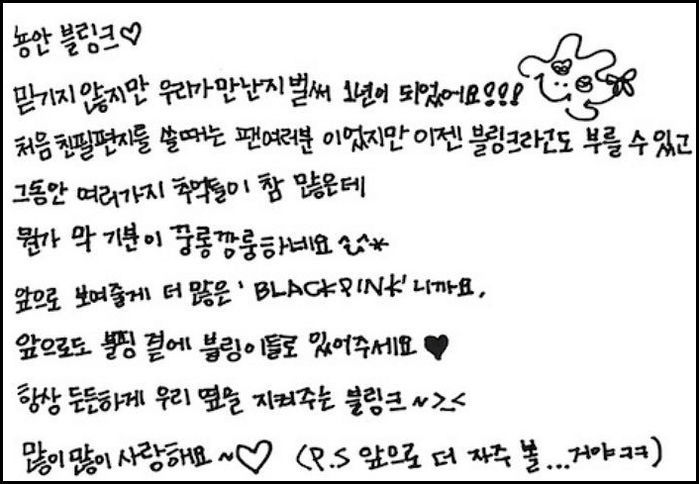 뇽안 블링크♡
믿기지 않지만 우리가 만난지 벌써 1년이 되었어요!!!
처음 친필편지를 쓸때는 팬여러분 이었지만 이젠 블링크라고도 부를 수 있고
그동안 여러가지 추억들이 참 많은데
뭔가 막 기분이 꾸롱깡룽하네요 ^^*
앞으로 보여줄게 더 많은 'BLACKPINK'니까요.
앞으로도 블핑 곁에 블링이들로 있어주세요 ♥
항상 든든하게 우리 옆을 지켜주는 블링크~>_<
많이 많이 사랑해요~♡ (P.S 앞으로 더 자주 볼...거야ㅋㅋ)